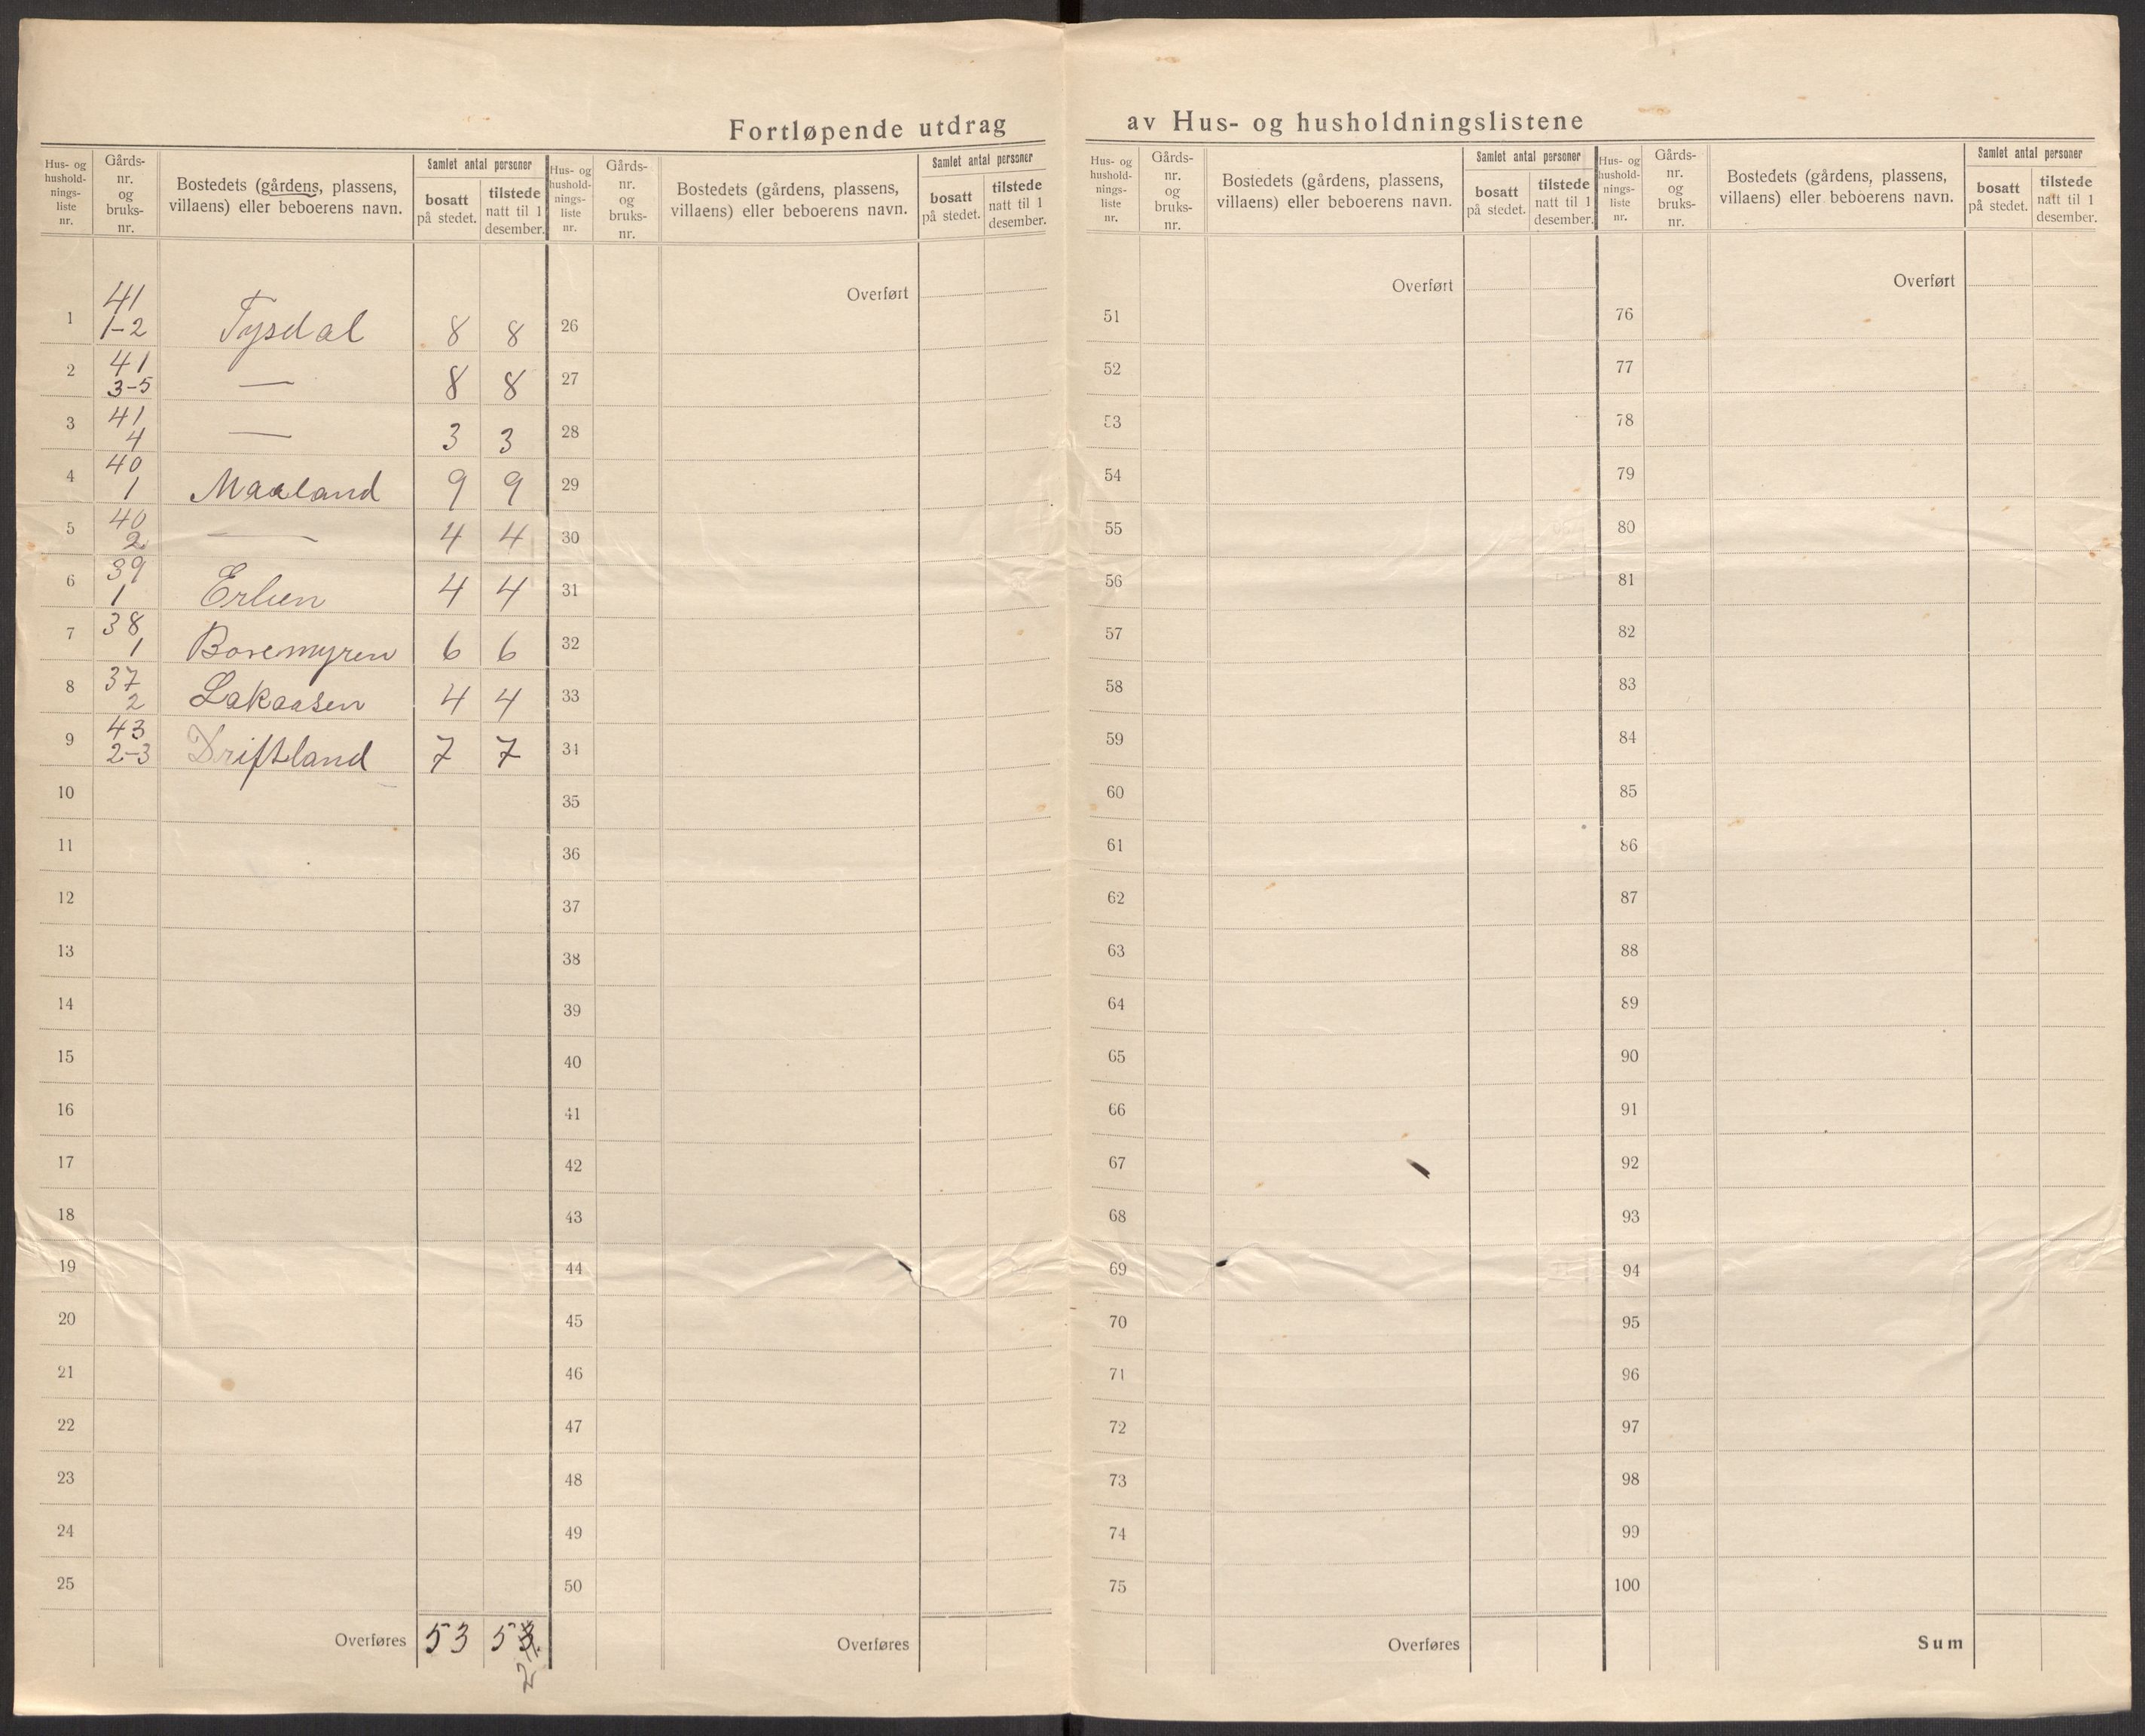 Fortløpende utdrag av Hus- og husholdningslistene
Hus- og
hushold-
nings-
liste
nr.
Gårds-
nr.
og
bruks-
nr.
Bostedets (gårdens, plassens,
villaens) eller beboerens navn.
Samlet antal personer
bosatt
på stedet.
tilstede
natt til 1
desember.
1 41 1-2 Tysdal 8 8
2 41 3-5 — 8 8
3 41 4 — 3 3
4 40 1 Maaland 9 9
5 40 2 — 4 4
6 39 1 Erlien 4 4
7 38 1 Boremyren 6 6
8 37 2 Lakaasen 4 4
9 43 2-3 Driftland 7 7
10
11
12
13
14
15
16
17
18
19
20
21
22
23
24
25
Overføres 53 53
2
Hus- og
hushold-
nings-
liste
nr.
Gårds-
nr.
og
bruks-
nr.
Bostedets (gårdens, plassens,
villaens) eller beboerens navn.
Samlet antal personer
bosatt
på stedet.
tilstede
natt til 1
desember.
Overført
26
27
28
29
30
31
32
33
34
35
36
37
38
39
40
41
42
43
44
45
46
47
48
49
50
Overføres
Hus- og
hushold-
nings-
liste
nr.
Gårds-
nr.
og
bruks-
nr.
Bostedets (gårdens, plassens,
villaens) eller beboerens navn.
Samlet antal personer
bosatt
på stedet.
tilstede
natt til 1
desember.
Overført
51
52
53
54
55
56
57
58
59
60
61
62
63
64
65
66
67
68
69
70
71
72
73
74
75
Overføres
Hus- og
hushold-
nings-
liste
nr.
Gårds-
nr.
og
bruks-
nr.
Bostedets (gårdens, plassens,
villaens) eller beboerens navn.
Samlet antal personer
bosatt
på stedet.
tilstede
natt til 1
desember.
Overført
76
77
78
79
80
81
82
83
84
85
86
87
88
89
90
91
92
93
94
95
96
97
98
99
100
Sum